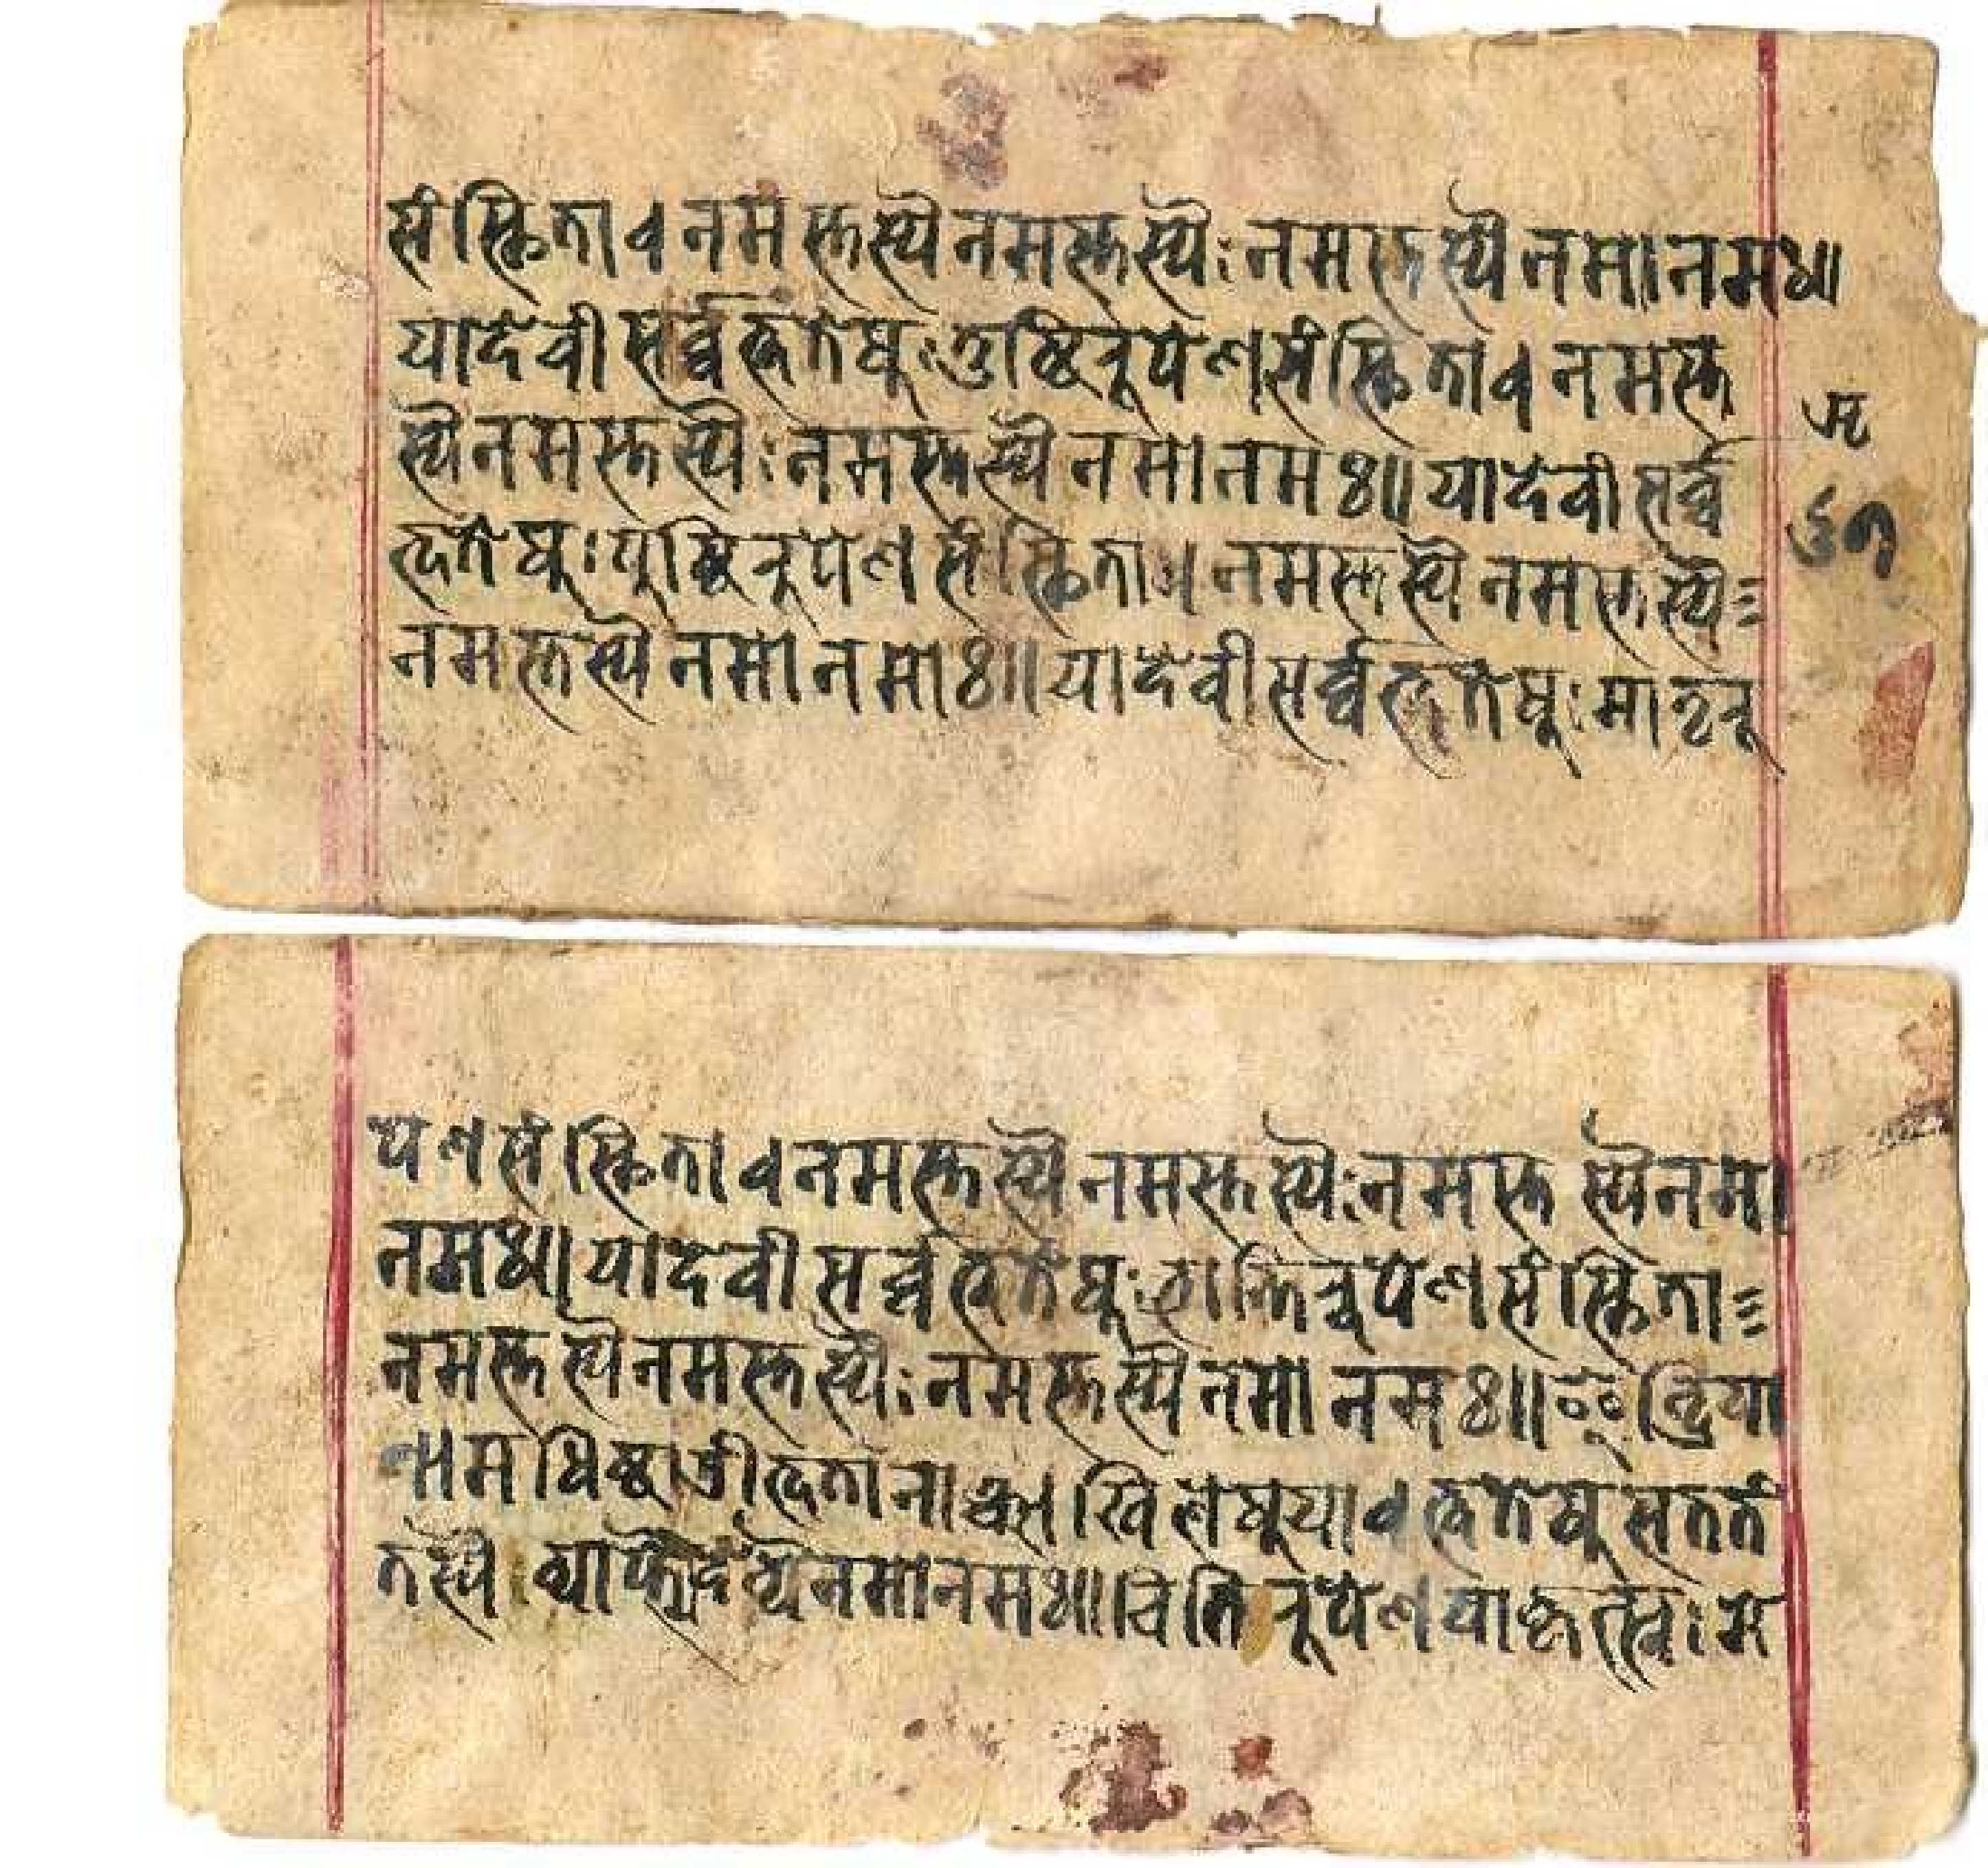 संस्थिता। नमस्तस्यै नमस्तस्यै: नमस्तस्यै नमो नमः॥
या देवी सर्व्वभूतेषू: तुष्टिरूपेण संस्थिता। नमस्त
स्यै नमस्तस्यै: नमस्तस्यै नमो नमः॥ या देवी सर्व्व
भूतेषू: पुष्टिरूपेण संस्थिता। नमस्तस्यै नमस्तस्यै:
नमस्तस्यै नमो नमोः॥ या देवी सर्व्वभूतेषू: मातृरू
पेण संस्थिता। नमस्तस्यै नमस्तस्यै: नमस्तस्यै नमो
नमः॥ या देवी सर्व्वभूतेषू: भ्रान्तिरूपेण संस्थिता
नमस्तस्यै नमस्तस्यै: नमस्तस्यै नमो नमः॥ इन्द्रिया
णामधिष्ठात्री भूतानाञ्चाखिलेषू या। भूतेषू सततं
तस्यै व्याप्त्यै देव्यै नमो नमः॥ चितिरूपेण या कृत्स्न: मे